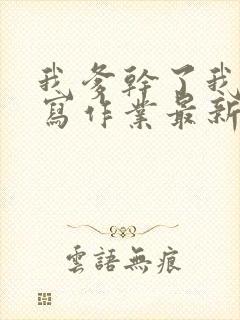 我爹幹了我
寫作業最新
雲語無痕